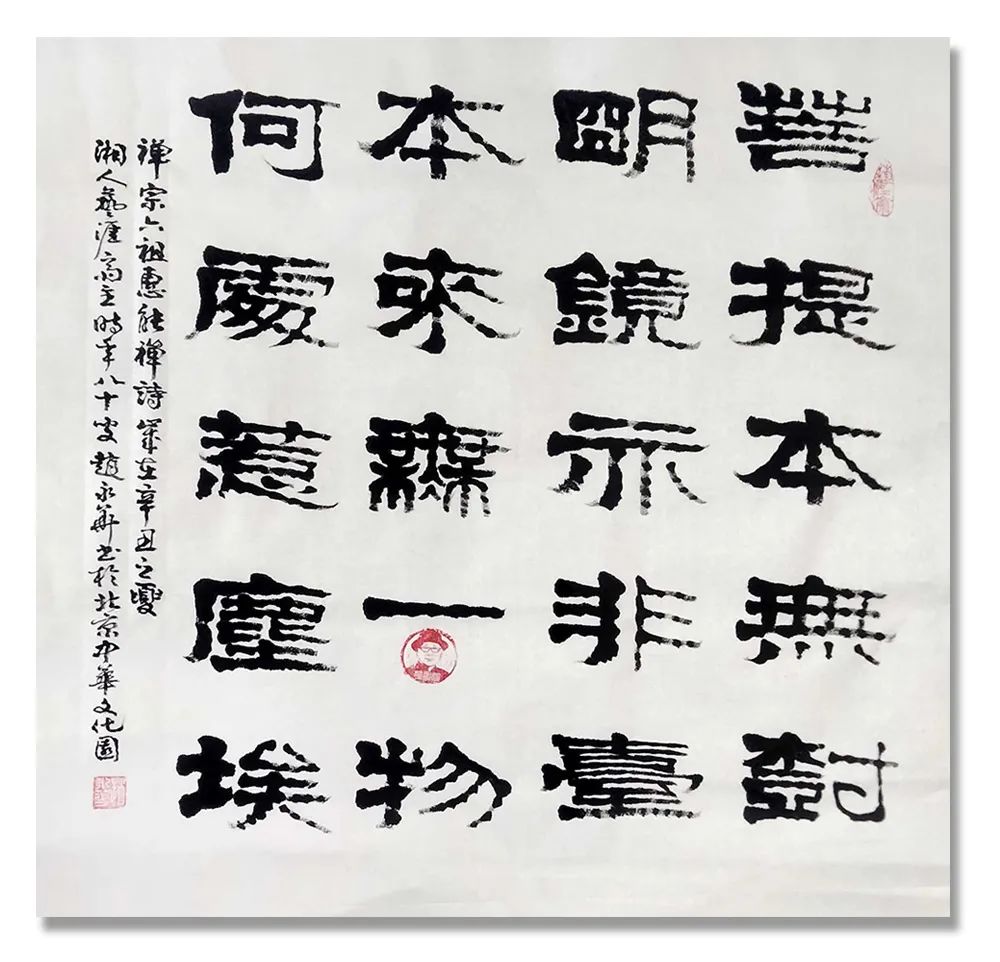 菩提本無樹
明鏡亦非臺
本來無一物
何處惹塵埃
禪宗六祖惠能禪詩歲在辛丑之夏
湘人藝涯齋主時年八十叟趙永華書於北京中華文化園